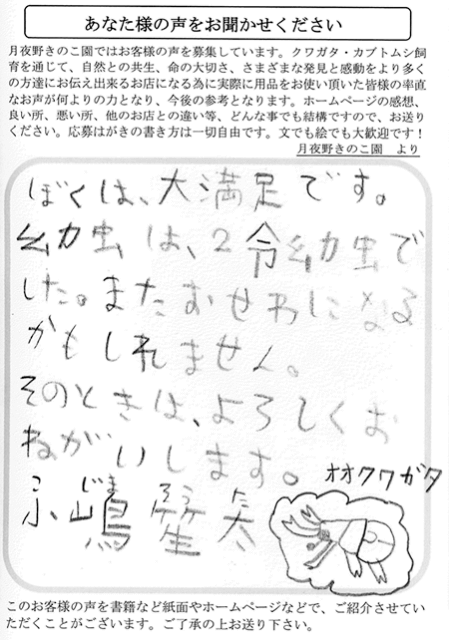 あなた様の声をお聞かせください
月夜野きのこ園ではお客様の声を募集しています。クワガタ・カブトムシ飼
育を通じて、自然との共生、命の大切さ、さまざまな発見と感動をより多く
の方達にお伝え出来るお店になる為に実際に用品をお使い頂いた皆様の率直
なお声が何よりの力となり、今後の参考となります。ホームページの感想、
良い所、悪い所、他のお店との違い等、どんな事でも結構ですので、お送り
ください。応募はがきの書き方は一切自由です。文でも絵でも大歓迎です！
月夜野きのこ園　より
ぼくは、大満足です。
幼虫は、2令幼虫で
した。またおせわになる
かもしれません。
そのときは、よろしくお
ねがいします。
オオクワガタ
こ じま りゅう た
小嶋 太
このお客様の声を書籍など紙面やホームページなどで、ご紹介させてい
ただくことがございます。ご了承の上お送り下さい。